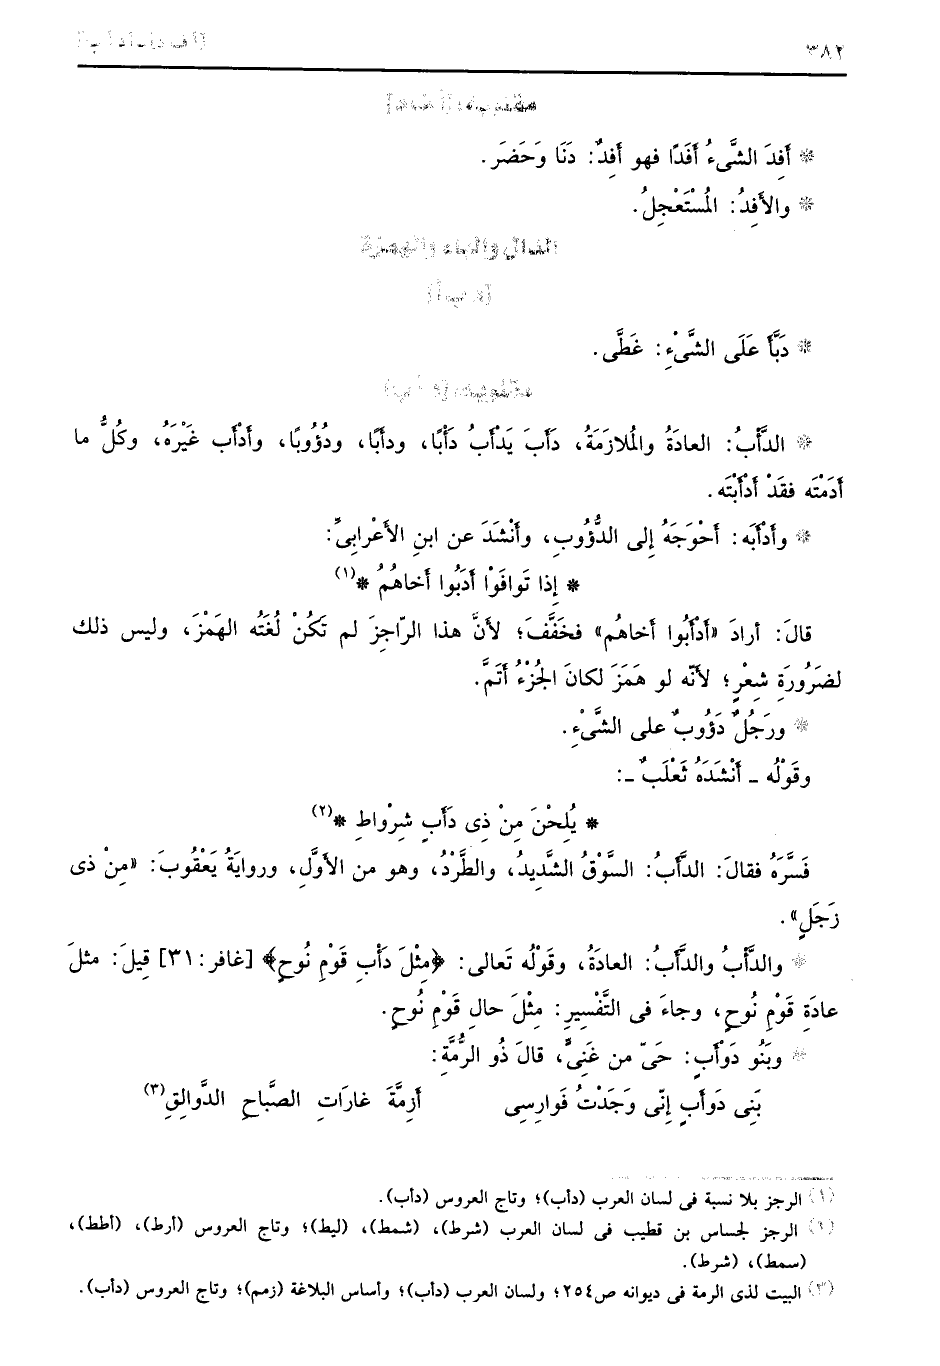 ٣٨٢
مقلوبه: [أ ف د]
* أَفِدَ الشَّىءُ أَفَدًا فهو أَفِدٌ: دَنَا وَحَضَرَ.
* والأَفِدُ: المُسْتَعْجِلُ.
الدال والباء والهمزة
[د ب أ]
* دَبَّأَ عَلَى الشَّىْءِ: غَطَّى.
مقلوبه: [د أ ب]
* الدَّأْبُ: العادَةُ والمُلازَمَةُ، دَأَبَ يَدْأَبُ دَأْبًا، ودأبًا، ودُؤُوبًا، وأَدْأَب غَيْرَهُ، وكُلُّ ما
أَدَمْتَه فقَدْ أَدْأَبْتَه.
* وأَدْأَبَه: أَحْوَجَهُ إلى الدُّؤُوبِ، وأَنْشَدَ عن ابنِ الأَعْرابىِّ:
* إِذا تَوافَوْا أَدَبُوا أَخاهُمُ *(١)
قالَ: أرادَ «أَدْأَبُوا أخاهُم» فخَفَّفَ؛ لأنَّ هذا الرّاجِزَ لم تَكُنْ لُغَتُه الهَمْزَ، وليس ذلك
لضَرُورَةِ شِعْرٍ؛ لأنَّه لو هَمَزَ لكانَ الجُزْءُ أَتَمَّ.
* ورَجُلٌ دَؤُوبٌ على الشَّىْءِ.
وقَوْلُه ـ أَنْشَدَهُ ثَعْلَبٌ ـ:
* يُلِحْنَ مِنْ ذِى دَأَبٍ شِرْواطِ *(٢)
فَسَّرَهُ فقالَ: الدَّأَبُ: السَّوْقُ الشَّدِيدُ، والطَّرْدُ، وهو من الأَوَّلِ، وروايَةُ يَعْقُوبَ: «مِنْ ذى
زَجَلٍ».
* والدَّأْبُ والدَّأَبُ: العادَةُ، وقَوْلُه تَعالى: ﴿مِثْلَ دَأْبِ قَوْمِ نُوحٍ﴾ [غافر: ٣١] قِيلَ: مثلَ
عادَةِ قَوْمِ نُوحٍ، وجاءَ فى التَّفْسِيرِ: مِثْلَ حالِ قَوْمِ نُوحٍ.
* وبَنُو دَوْأَبٍ: حَىّ من غَنِىٍّ، قالَ ذُو الرُّمَّةِ:
بَنِى دَوأَبٍ إنِّى وَجَدْتُ فَوارِسِى أَزِمَّةَ غارَاتِ الصَّباحِ الدَّوالِقِ(٣)
(١) الرجز بلا نسبة فى لسان العرب (دأب)؛ وتاج العروس (دأب).
(٢) الرجز لجساس بن قطيب فى لسان العرب (شرط)، (شمط)، (ليط)؛ وتاج العروس (أرط)، (أطط)،
(سمط)، (شرط).
(٣) البيت لذى الرمة فى ديوانه ص٢٥٤؛ ولسان العرب (دأب)؛ وأساس البلاغة (زمم)؛ وتاج العروس (دأب).